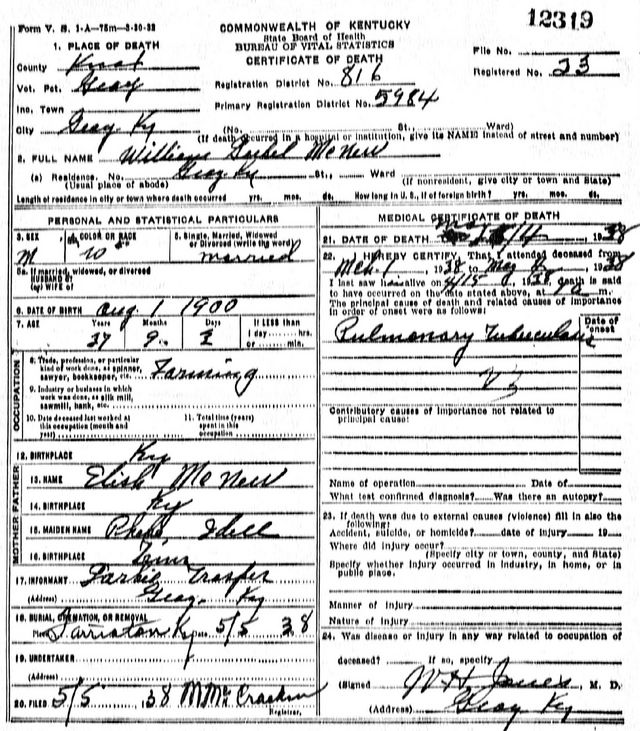 12319
Form V. S. 1-A—75m—3-30-32
COMMONWEALTH OF KENTUCKY
State Board of Health
BUREAU OF VITAL STATISTICS
CERTIFICATE OF DEATH
1. PLACE OF DEATH
File No.
County Knox
Registration District No. 816
Registered No. 23
Vot. Pct. Gray
Primary Registration District No. 5984
Inc. Town
City Gray Ky (No. St., Ward)
(If death occurred in a hospital or institution, give its NAME instead of street and number)
2. FULL NAME William McNew
(a) Residence. No. Gray Ky St., Ward
(Usual place of abode) (If nonresident, give city or town and State)
Length of residence in city or town where death occurred yrs. mos. ds. How long in U. S., if of foreign birth? yrs. mos. ds.
PERSONAL AND STATISTICAL PARTICULARS
3. SEX M
4. COLOR OR RACE W
5. Single, Married, Widowed or Divorced (write the word) married
5a. If married, widowed, or divorced
HUSBAND of
(or) WIFE of
6. DATE OF BIRTH Aug 1 1900
7. AGE Years Months Days If LESS than
37 9 1 day hrs.
or min.
OCCUPATION
8. Trade, profession, or particular
kind of work done, as spinner,
sawyer, bookkeeper, etc. Farming
9. Industry or business in which
work was done, as silk mill,
sawmill, bank, etc.
10. Date deceased last worked at
this occupation (month and
year)
11. Total time (years)
spent in this
occupation
12. BIRTHPLACE Ky
FATHER
13. NAME Elish McNew
14. BIRTHPLACE Ky
MOTHER
15. MAIDEN NAME Idell
16. BIRTHPLACE Tenn
17. INFORMANT
(Address) Gray, Ky
18. BURIAL, CREMATION, OR REMOVAL
Place Ky Date 5/5 38
19. UNDERTAKER
(Address)
20. FILED 5/5, 1938 McCracken
Registrar.
MEDICAL CERTIFICATE OF DEATH
21. DATE OF DEATH 4 1938
22. I HEREBY CERTIFY, That I attended deceased from
Mch 1, 1938 to May, 1938
I last saw him alive on 4/15, 1938, death is said
to have occurred on the date stated above, at m.
The principal cause of death and related causes of importance
in order of onset were as follows:
Date of onset
Pulmonary Tuberculosis
Contributory causes of importance not related to
principal cause:
Name of operation Date of
What test confirmed diagnosis? Was there an autopsy?
23. If death was due to external causes (violence) fill in also the
following:
Accident, suicide, or homicide? date of injury 19
Where did injury occur?
(Specify city or town, county, and State)
Specify whether injury occurred in industry, in home, or in
public place.
Manner of Injury
Nature of Injury
24. Was disease or injury in any way related to occupation of
deceased? If so, specify
(Signed W H Jones, M. D.
(Address) Gray Ky